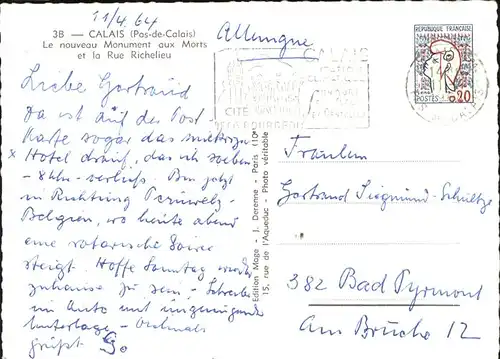 11/4.64
3B — CALAIS (Pas-de-Calais)
Le nouveau Monument aux Morts
et la Rue Richelieu
Allemagne
REPUBLIQUE FRANÇAISE
POSTES 0,20
CALAIS
CITÉ
Liebe Gertraud
Da ist auf der Post
Karte sogar das
x Hotel drauf, das ich soeben
- 8 Uhr - verließ. Bin jetzt
in Richtung Peruwelz -
Belgien, wo heute abend
eine rotarische Soiree
steigt. Hoffe Sonntag wieder
zuhause zu sein, - Schreibe
im Auto mit ungenügender
Unterlage -
grüßt
Edition Mage - J. Derenne - Paris (10e)
15, rue de l'Aqueduc - Photo véritable
Fräulein
Gertrand Siegmund-Schultze
382 Bad Pyrmont
Am Brüche 12